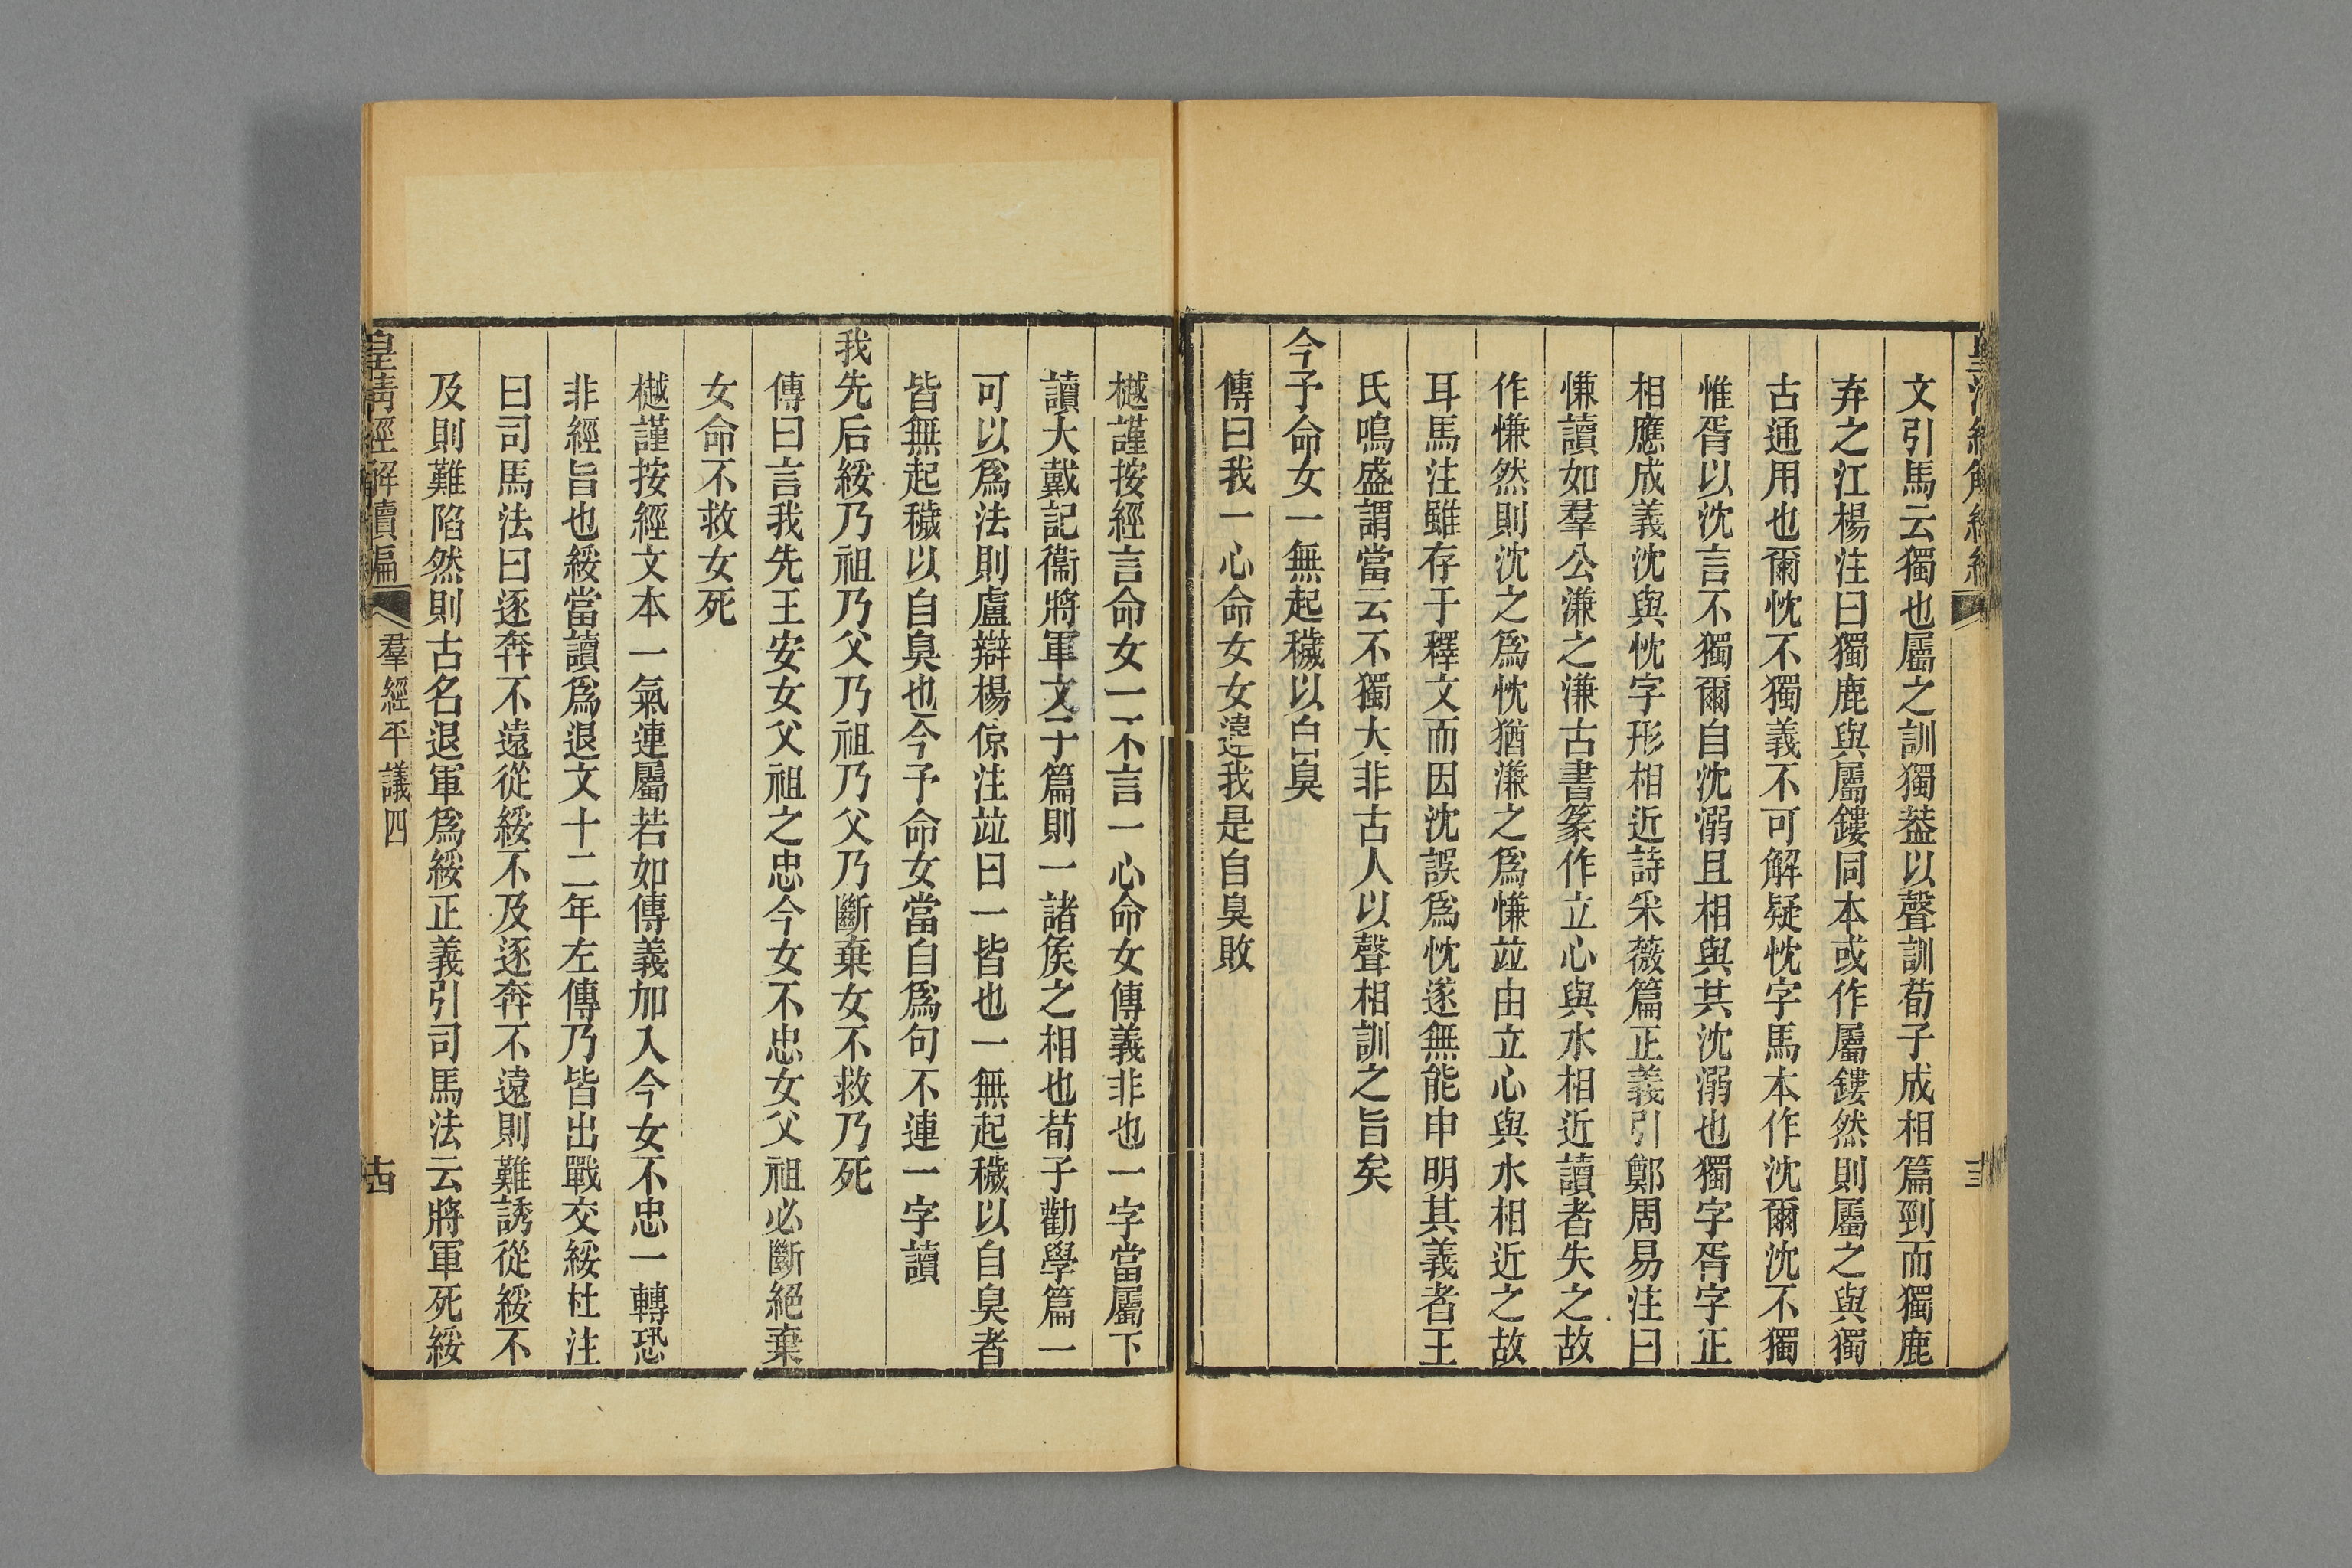 文引馬云獨也屬之訓獨葢以聲訓荀子成相篇到而獨鹿
弃之江楊注曰獨鹿與屬鏤同本或作屬鏤然則屬之與獨
古通用也爾忱不獨義不可解疑忱字馬本作沈爾沈不獨
惟胥以沈言不獨爾自沈溺且相與共沈溺也獨字胥字正
相應成義沈與忱字形相近詩采薇篇正義引鄭周易注曰
慊讀如羣公溓之溓古書篆作立心與水相近讀者失之故
作慊然則沈之爲忱猶溓之爲慊竝由立心與水相近之故
耳馬注雖存于釋文而因沈誤爲忱遂無能申明其義者王
氏鳴盛謂當云不獨大非古人以聲相訓之旨矣
今予命女一無起穢以自臭
傳曰我一心命女女違我是自臭敗
樾謹按經言命女一不言一心命女傳義非也一字當屬下
讀大戴記衞將軍文子篇則一諸矦之相也荀子勸學篇一
可以爲法則盧辯楊倞注竝曰一皆也一無起穢以自臭者
皆無起穢以自臭也今予命女當自爲句不連一字讀
我先后綏乃祖乃父乃祖乃父乃斷棄女不救乃死
傳曰言我先王安女父祖之忠今女不忠女父祖必斷絕棄
女命不救女死
樾謹按經文本一氣連屬若如傳義加入今女不忠一轉恐
非經旨也綏當讀爲退文十二年左傳乃皆出戰交綏杜注
曰司馬法曰逐奔不遠從綏不及逐奔不遠則難誘從綏不
及則難陷然則古名退軍爲綏正義引司馬法云將軍死綏
皇清經解續編
羣經平議四
十四